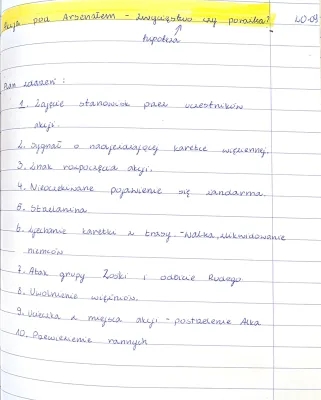 Akcja pod Arsenałem - zwycięstwo czy porażka? 20.09
hipoteza
Plan zdarzeń:
1. Zajęcie stanowisk przez uczestników
akcji.
2. Sygnał o nadjeżdżającej karetce więziennej.
3. Znak rozpoczęcia akcji.
4. Nieoczekiwane pojawienie się żandarma.
5. Strzelanina
6. Zjechanie karetki z trasy - walka, zlikwidowanie
niemców
7. Atak grupy Zośki i odbicie Rudego
8. Uwolnienie więźniów.
9. Ucieczka z miejsca akcji - postrzelenie Alka.
10. Przewiezienie rannych